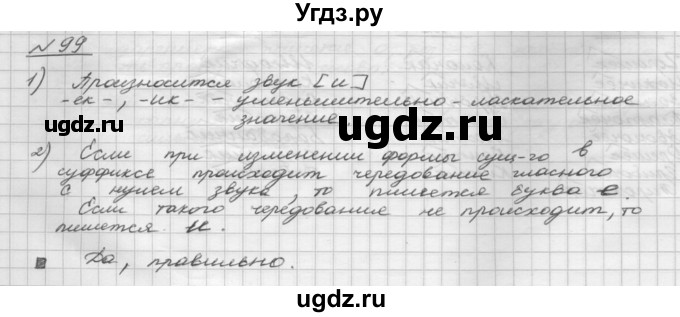 Угдз.ру
№ 99
1) Произносится звук [и]
-ек-, -ик- - уменьшительно-ласкательное
значение
ugdz.ru
2) Если при изменении формы сущ-го в
суффиксе происходит чередование гласного
с нулем звука, то пишется буква е.
Если такого чередования не происходит, то
пишется и.
ugdz.ru
Да, правильно.
ugdz.ru